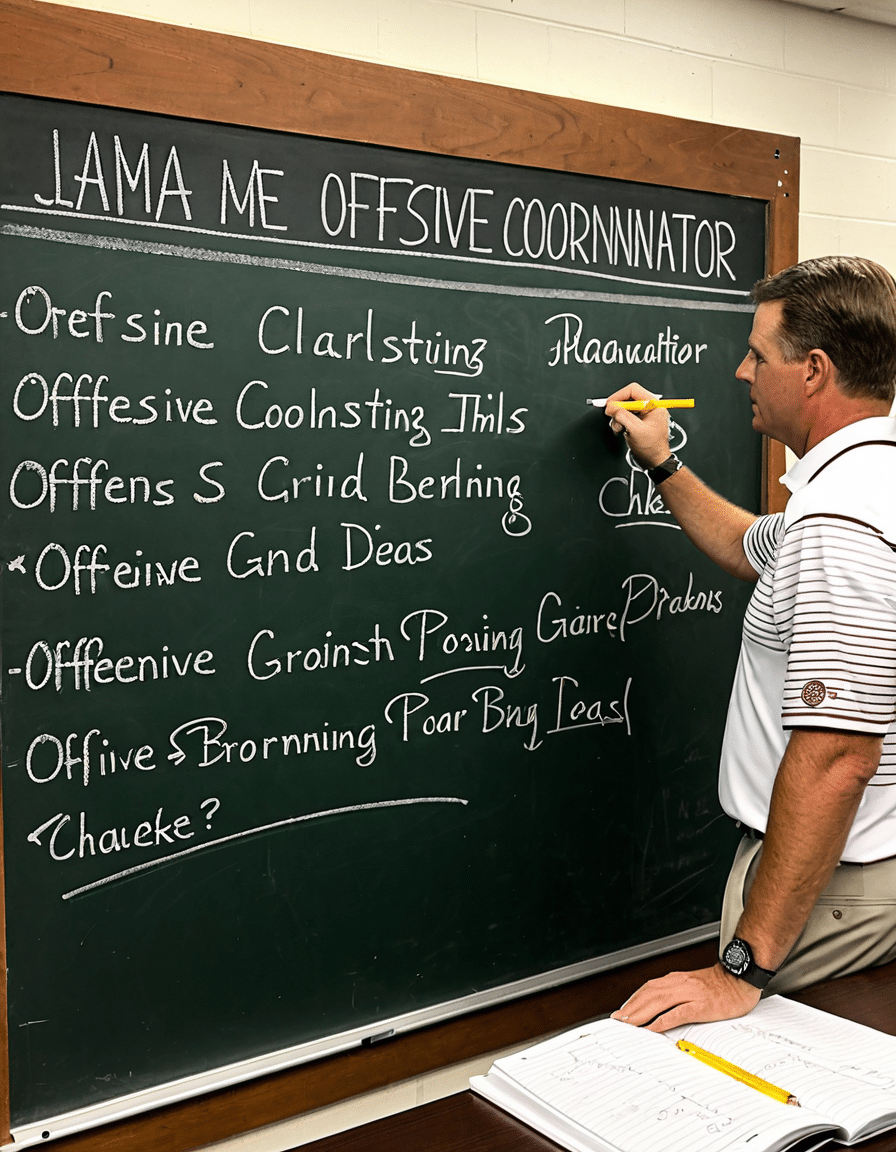 JAMA ME OFFSIVE COORNNNATOR
-Orefsine Clarlstuing Plaauattior
Offfesive Coolnsting Thils
Offfens S Griid Berlning
Chke
*Offeiive Gnd Dieas
-Offfeenive Groinsth Posiing Gaire Prakns
Offiive Brornming Poar Bng Ieas
Chaueke?